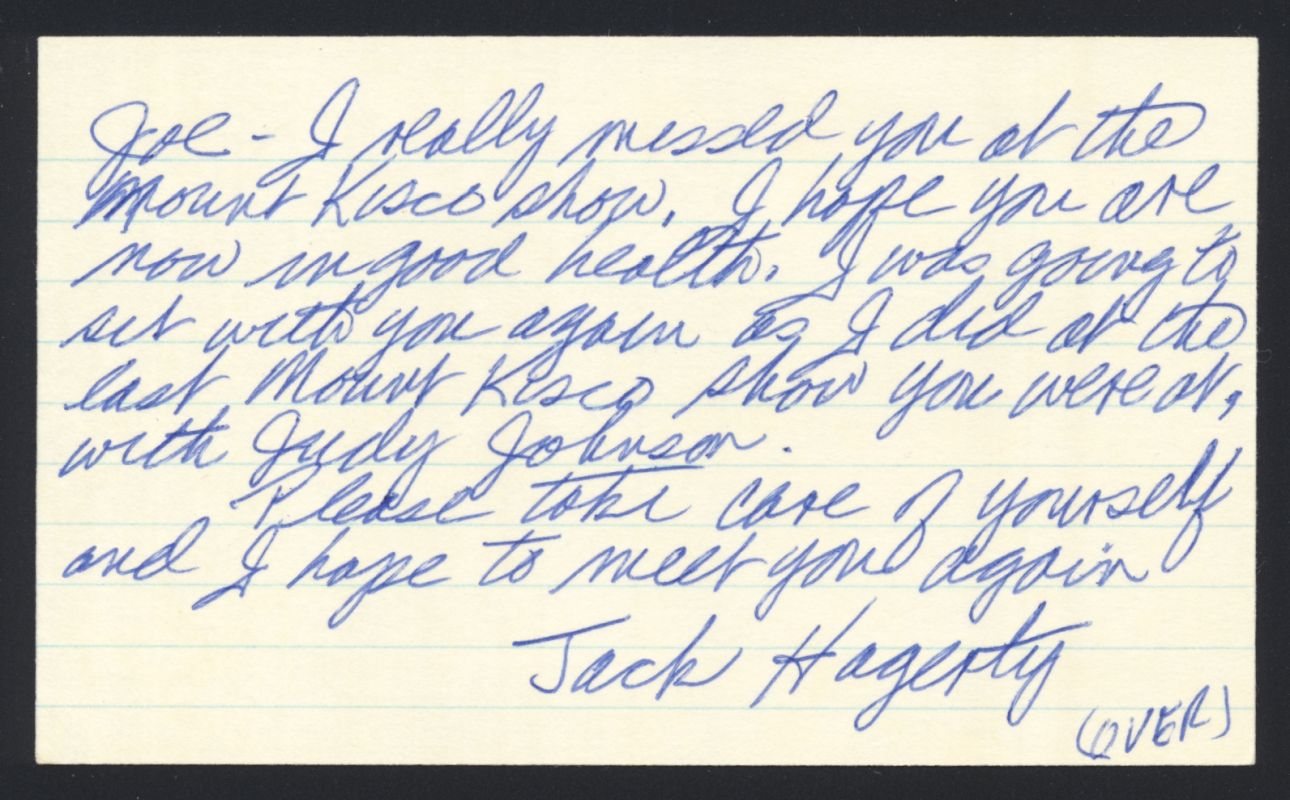 Joe - I really missed you at the
Mount Kisco show. I hope you are
now in good health. I was going to
sit with you again as I did at the
last Mount Kisco show you were at,
with Judy Johnson.
Please take care of yourself
and I hope to meet you again
Jack Hagerty
(OVER)